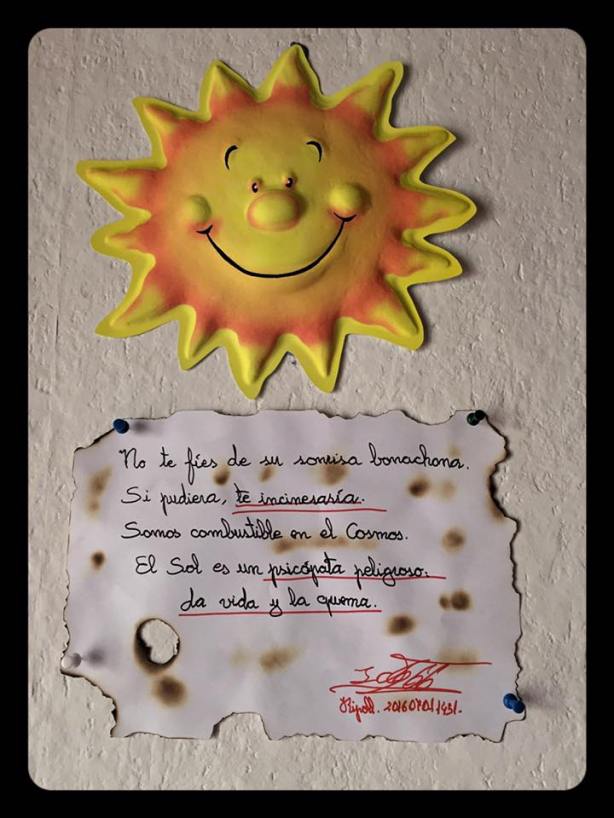 No te fíes de su sonrisa bonachona.
Si pudiera, te incineraría.
Somos combustible en el Cosmos.
El Sol es un psicópata peligroso:
da vida y la quema.
Ripoll. 201607011431.